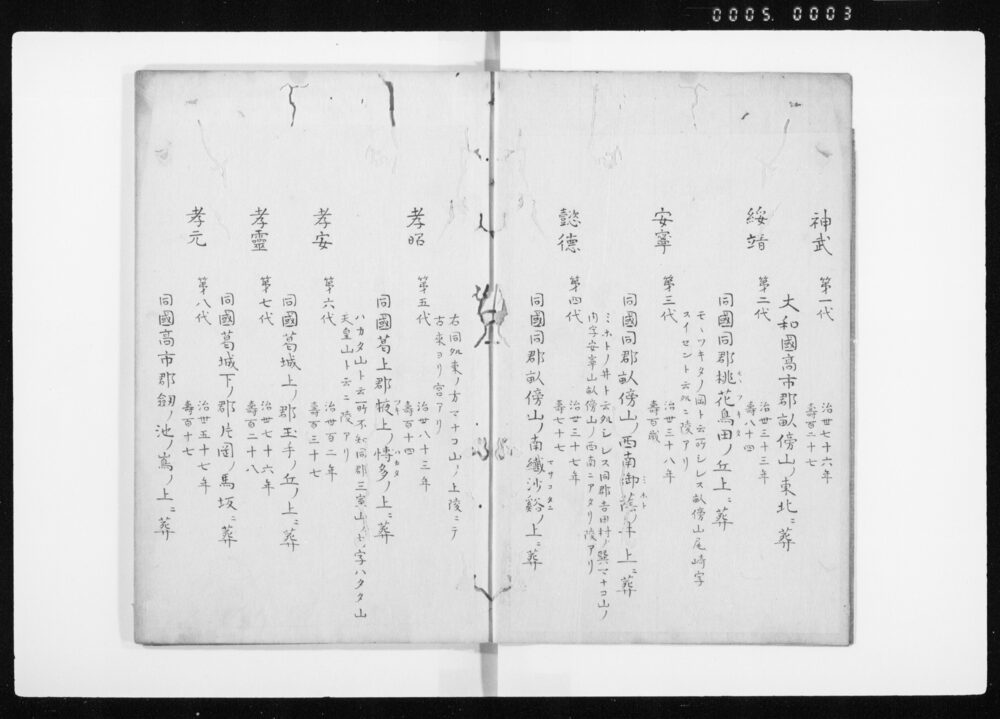 0005. 0003
神武
第一代
治世七十六年
壽百二十七
大和國高市郡畝傍山ノ東北ニ葬
綏靖
第二代
治世三十三年
壽八十四
同國同郡桃花鳥田ノ丘上ニ葬
モヽツキタノ岡ト云所シレス畝傍山尾崎字
スイセント云処ニ陵アリ
安寧
第三代
治世三十八年
壽百歳
同國同郡畝傍山ノ西南御蔭ノ井上ニ葬
ミホト
ミホトノ井ト云処シレス同郡吉田村ノ巽マナコ山ノ
内字安寧山畝傍山ノ西南ニアタリ陵アリ
懿德
第四代
治世三十七年
壽七十七
同國同郡畝傍山ノ南纖沙谿ノ上ニ葬
マサコタニ
右同処東ノ方マナコ山ノ上陵ニテ
古来ヨリ宮アリ
孝昭
第五代
治世八十三年
壽百十四
同國葛上郡掖上ノ博多ノ上ニ葬
ワキ
ハカタ
ハカタ山ト云所不知同郡三室山ノ字ハタタ山
天皇山ト云ニ陵アリ
孝安
第六代
治世百二年
壽百三十七
同國葛城上ノ郡玉手ノ丘ノ上ニ葬
孝靈
第七代
治世七十六年
壽百二十八
同國葛城下ノ郡片岡ノ馬坂ニ葬
孝元
第八代
治世五十七年
壽百十七
同國高市郡劔ノ池ノ嶌ノ上ニ葬